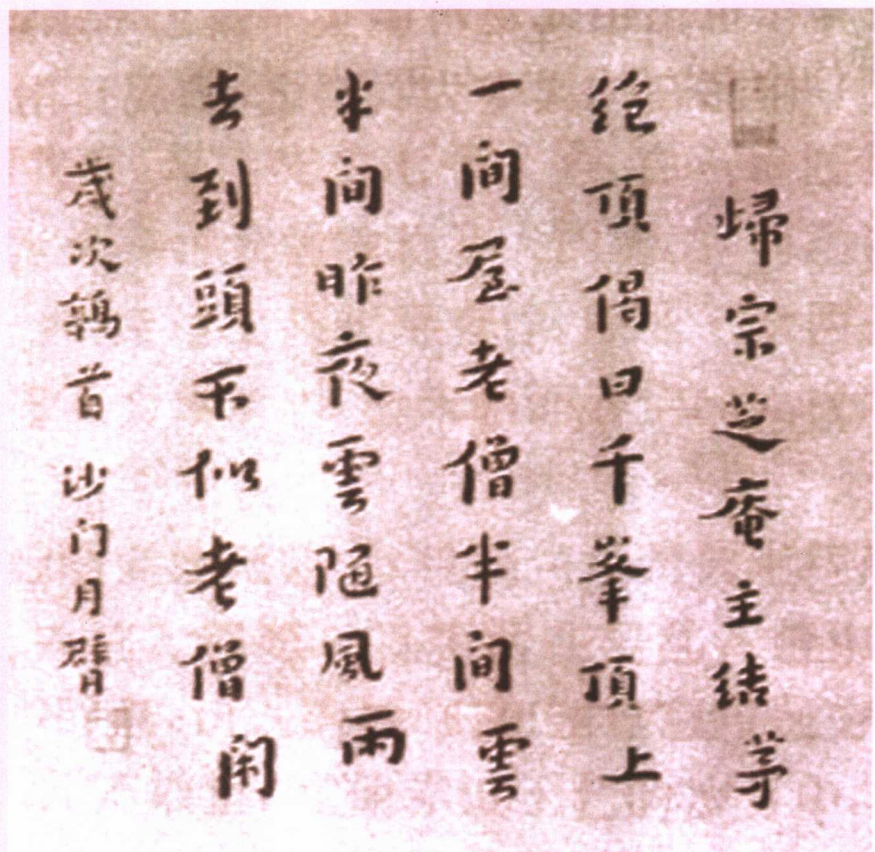 歸宗芝庵主結茅
絶頂偈曰千峯頂上
一間屋老僧半間雲
半間昨夜雲随風雨
去到頭不似老僧閑
歲次鶉首 沙门月臂